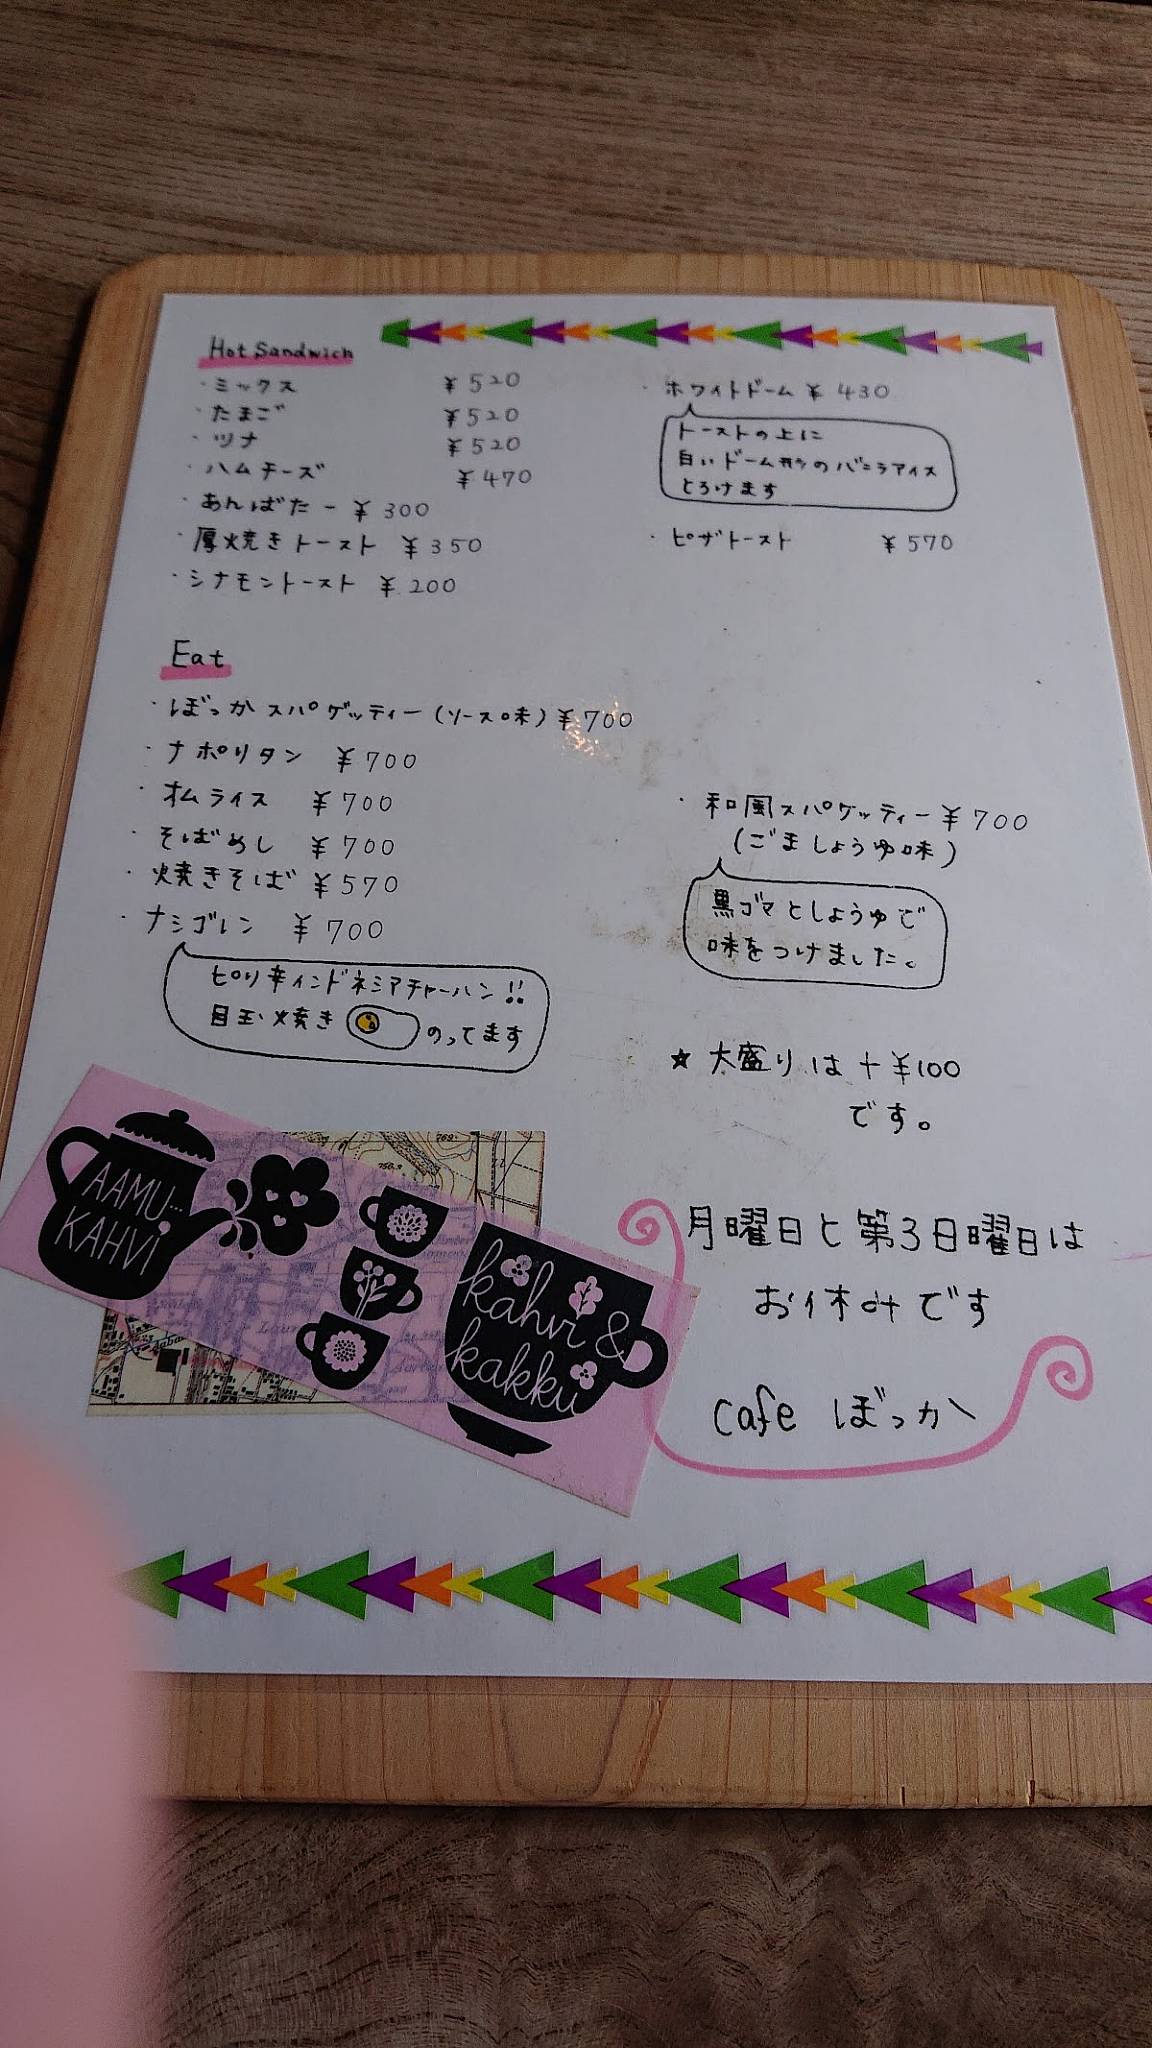 Hot Sandwich
・ミックス ¥520
・たまご ¥520
・ツナ ¥520
・ハムチーズ ¥470
・あんばたー ¥300
・厚焼きトースト ¥350
・シナモントースト ¥200
・ホワイトドーム ¥430
トーストの上に
白いドーム形のバニラアイス
とろけます
・ピザトースト ¥570
Eat
・ぼっかスパゲッティー(ソース味)¥700
・ナポリタン ¥700
・オムライス ¥700
・そばめし ¥700
・焼きそば ¥570
・ナシゴレン ¥700
ピリ辛インドネシアチャーハン!!
目玉焼きのってます
・和風スパゲッティー¥700
(ごましょうゆ味)
黒ゴマとしょうゆで
味をつけました。
★大盛りは+¥100
です。
AAMU...
KAHVI
kahvi &
kakku
月曜日と第3日曜日は
お休みです
cafe ぼっか